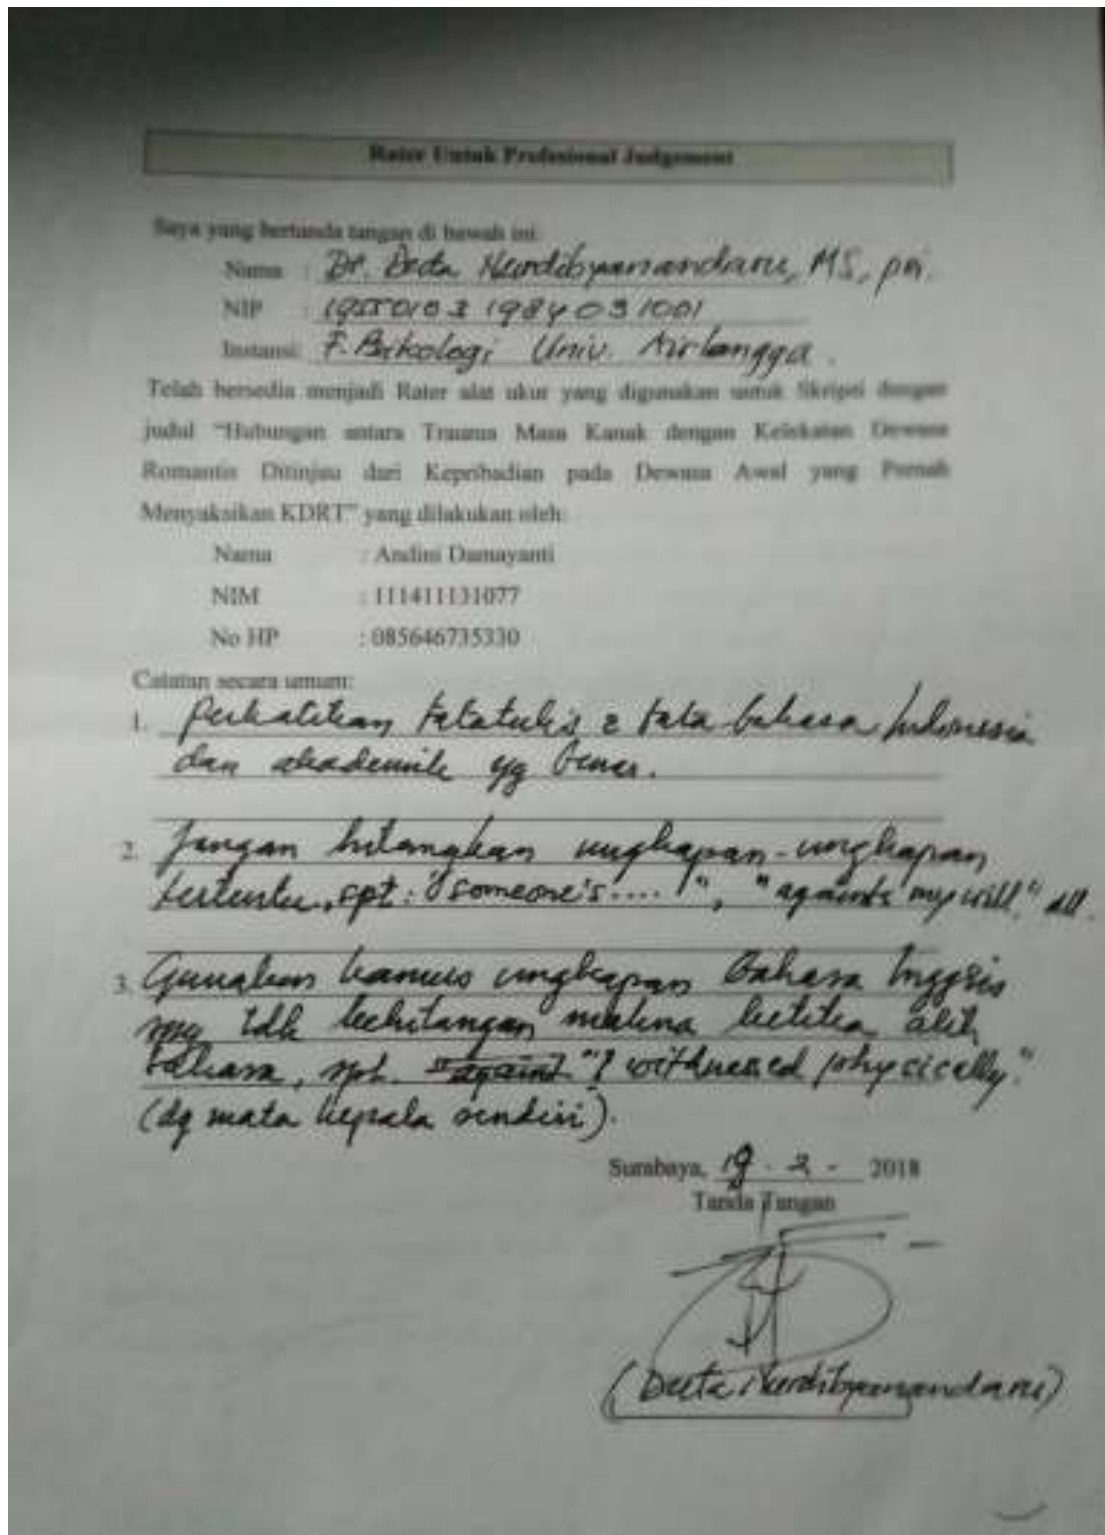 Rater Untuk Profesional Judgement
Saya yang bertanda tangan di bawah ini:
Nama : Dr. Duta Nurdibyanandaru, MS, psi.
NIP : 19550103 198403 1001
Instansi: F. Psikologi Univ. Airlangga.
Telah bersedia menjadi Rater alat ukur yang digunakan untuk Skripsi dengan
judul "Hubungan antara Trauma Masa Kanak dengan Kelekatan Dewasa
Romantis Ditinjau dari Kepribadian pada Dewasa Awal yang Pernah
Menyaksikan KDRT" yang dilakukan oleh:
Nama : Andini Damayanti
NIM : 111411131077
No HP : 085646735330
Catatan secara umum:
1. Perhatikan tatatulis & tata bahasa Indonesia
dan akademik yg benar.
2. Jangan hilangkan ungkapan-ungkapan
tertentu, spt: "someone's....!", "againts my will," dll.
3. Gunakan kamus ungkapan Bahasa Inggris
spy tdk kehilangan makna ketika alih
bahasa, spt. "against "I witnessed physically."
(dg mata kepala sendiri).
Surabaya, 19 - 2 - 2018
Tanda Tangan
(Duta Nurdibyanandaru)